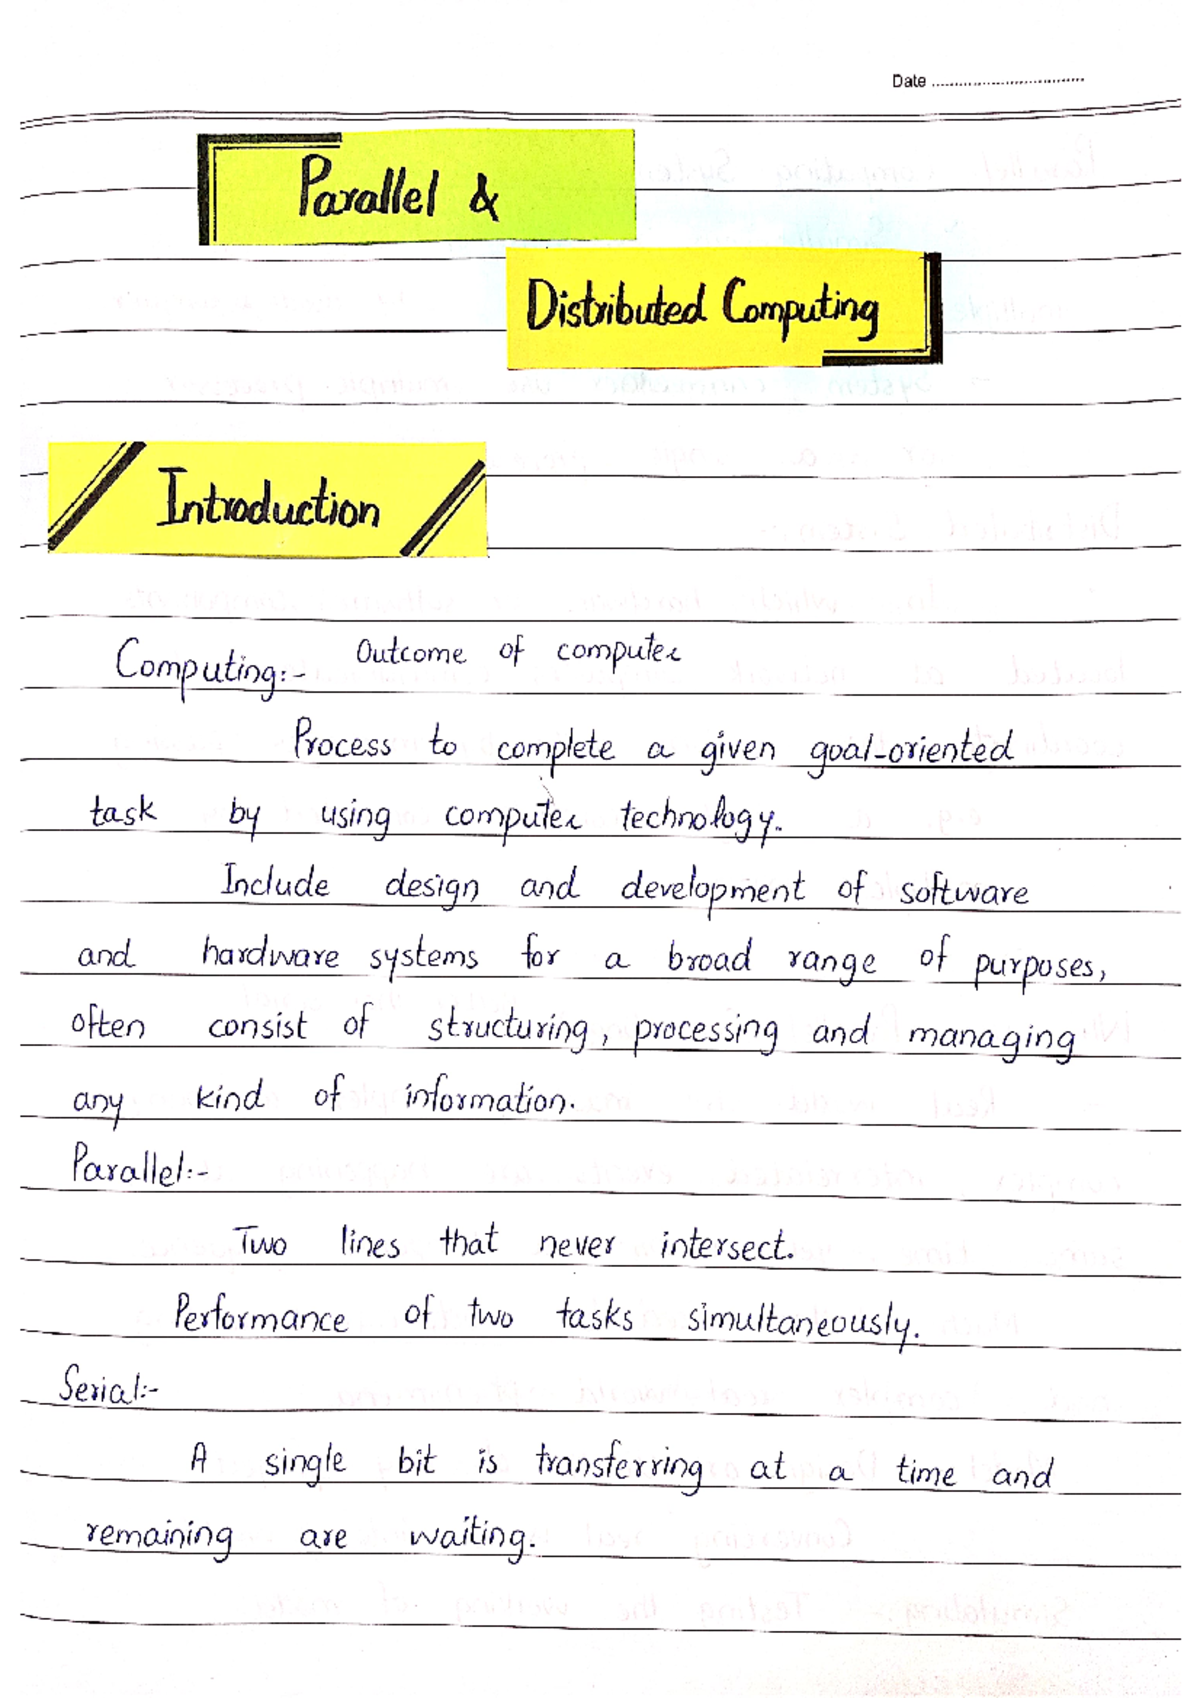 Date
Parallel &
Distributed Computing
Introduction
Computing:- Outcome of computer
Process to complete a given goal-oriented
task by using computer technology.
Include design and development of software
and hardware systems for a broad range of purposes,
often consist of structuring, processing and managing
any kind of information.
Parallel:-
Two lines that never intersect.
Performance of two tasks simultaneously.
Serial:-
A single bit is transferring at a time and
remaining are waiting.